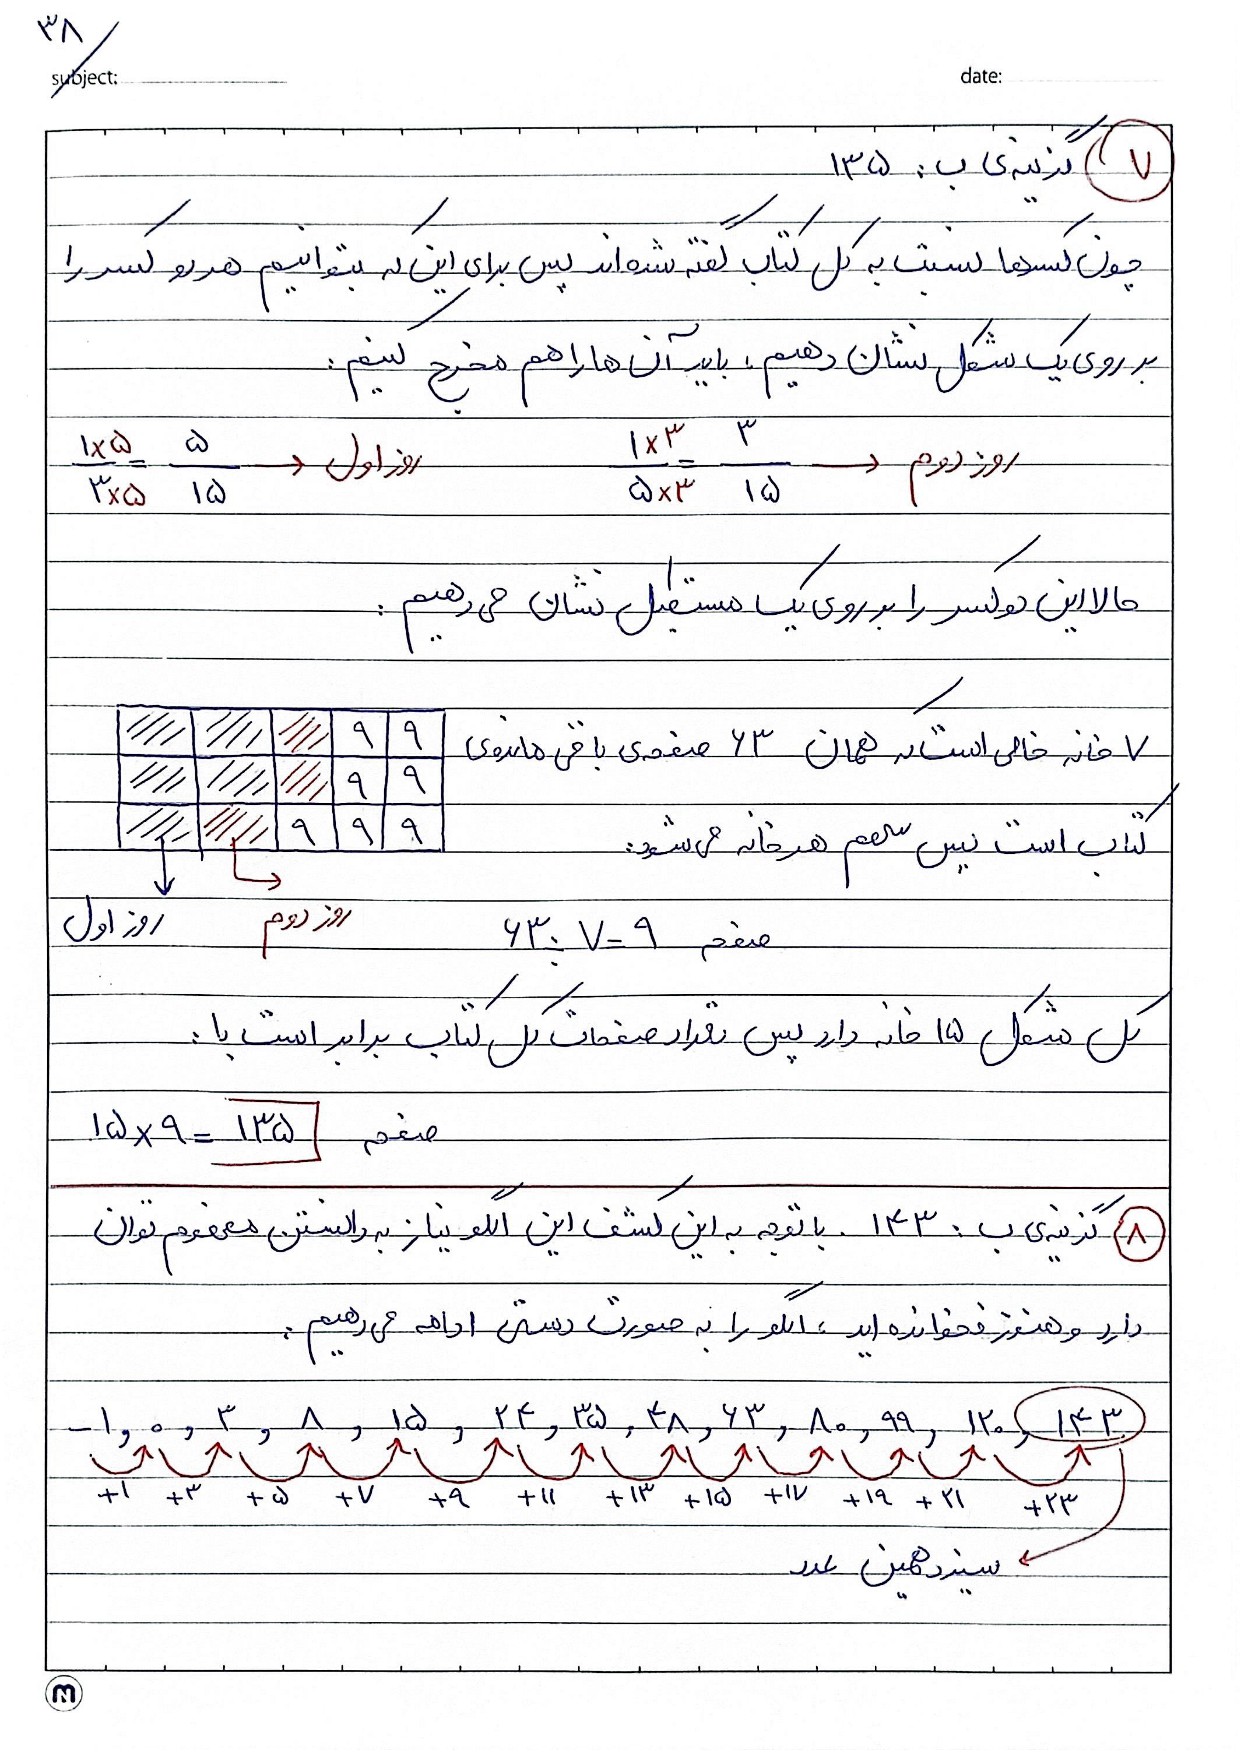 ۳۸
subject:
date:
۷) گزینه‌ی ب: ۱۳۵
چون کسرها نسبت به کل کتاب گفته شده‌اند پس برای این که بتوانیم هر دو کسر را
بر روی یک شکل نشان دهیم، باید آن ها را هم مخرج کنیم:
۱×۵/۳×۵ = ۵/۱۵ → روز اول
۱×۳/۵×۳ = ۳/۱۵ → روز دوم
حالا این دو کسر را بر روی یک مستطیل نشان می دهیم:
۹ ۹
۹ ۹
۹ ۹ ۹
روز اول
روز دوم
۷ خانه خالی است که همان ۶۳ صفحه‌ی باقی مانده‌ی
کتاب است پس سهم هر خانه می شود:
۶۳ ÷ ۷ = ۹ صفحه
کل شکل ۱۵ خانه دارد پس تعداد صفحات کل کتاب برابر است با:
۱۵×۹ = ۱۳۵ صفحه
۸ گزینه‌ی ب: ۱۴۳. با توجه به این کشف این الگو نیاز به دانستن مفهوم توان
دارد و هنوز نخوانده اید، الگو را به صورت دستی ادامه می دهیم:
-۱, ۰, ۳, ۸, ۱۵, ۲۴, ۳۵, ۴۸, ۶۳, ۸۰, ۹۹, ۱۲۰, ۱۴۳
+۱ +۳ +۵ +۷ +۹ +۱۱ +۱۳ +۱۵ +۱۷ +۱۹ +۲۱ +۲۳
سیزدهمین عدد